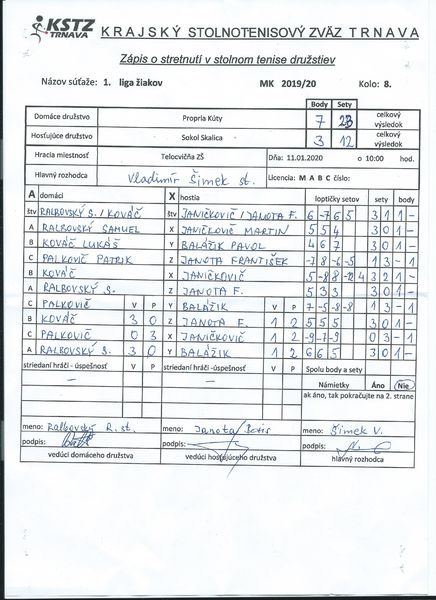 KSTZ TRNAVA KRAJSKÝ STOLNOTENISOVÝ ZVÄZ TRNAVA
Zápis o stretnutí v stolnom tenise družstiev
Názov súťaže: 1. liga žiakov MK 2019/20 Kolo: 8.
Body Sety
Domáce družstvo Propria Kúty 7 23 celkový výsledok
Hosťujúce družstvo Sokol Skalica 3 12 celkový výsledok
Hracia miestnosť Telocvičňa ZŠ Dňa: 11.01.2020 o 10:00 hod.
Hlavný rozhodca Vladimír Šimek st. Licencia: M A B C číslo:
A domáci X hostia loptičky setov sety body
štv RALBOVSKÝ S./KOVÁČ štv JANIČKOVIČ/JANOTA F. 6 -7 6 5 3 1 1 -
A RALBOVSKÝ SAMUEL X JANIČKOVIČ MARTIN 5 5 4 3 0 1 -
B KOVÁČ LUKÁŠ Y BALÁŽIK PAVOL 4 6 7 3 0 1 -
C PALKOVIČ PATRIK Z JANOTA FRANTIŠEK -7 8 -6 -5 1 3 - 1
B KOVÁČ X JANIČKOVIČ 5 -8 8 -2 4 3 2 1 -
A RALBOVSKÝ S. Z JANOTA F. 5 3 3 3 0 1 -
C PALKOVIČ V P Y BALÁŽIK V P 7 -5 -8 -8 1 3 - 1
B KOVÁČ 3 0 Z JANOTA F. 1 2 5 5 5 3 0 1 -
C PALKOVIČ 0 3 X JANIČKOVIČ 1 2 -9 -7 -9 0 3 - 1
A RALBOVSKÝ S. 3 0 Y BALÁŽIK 1 2 6 6 5 3 0 1 -
striedaní hráči - úspešnosť V P striedaní hráči - úspešnosť V P Spolu body a sety
— — Námietky Áno Nie
ak áno, tak pokračujte na 2. strane
meno: Ralbovský R. st. meno: Janota Boris meno: Šimek V.
podpis: podpis: podpis:
vedúci domáceho družstva vedúci hosťujúceho družstva hlavný rozhodca